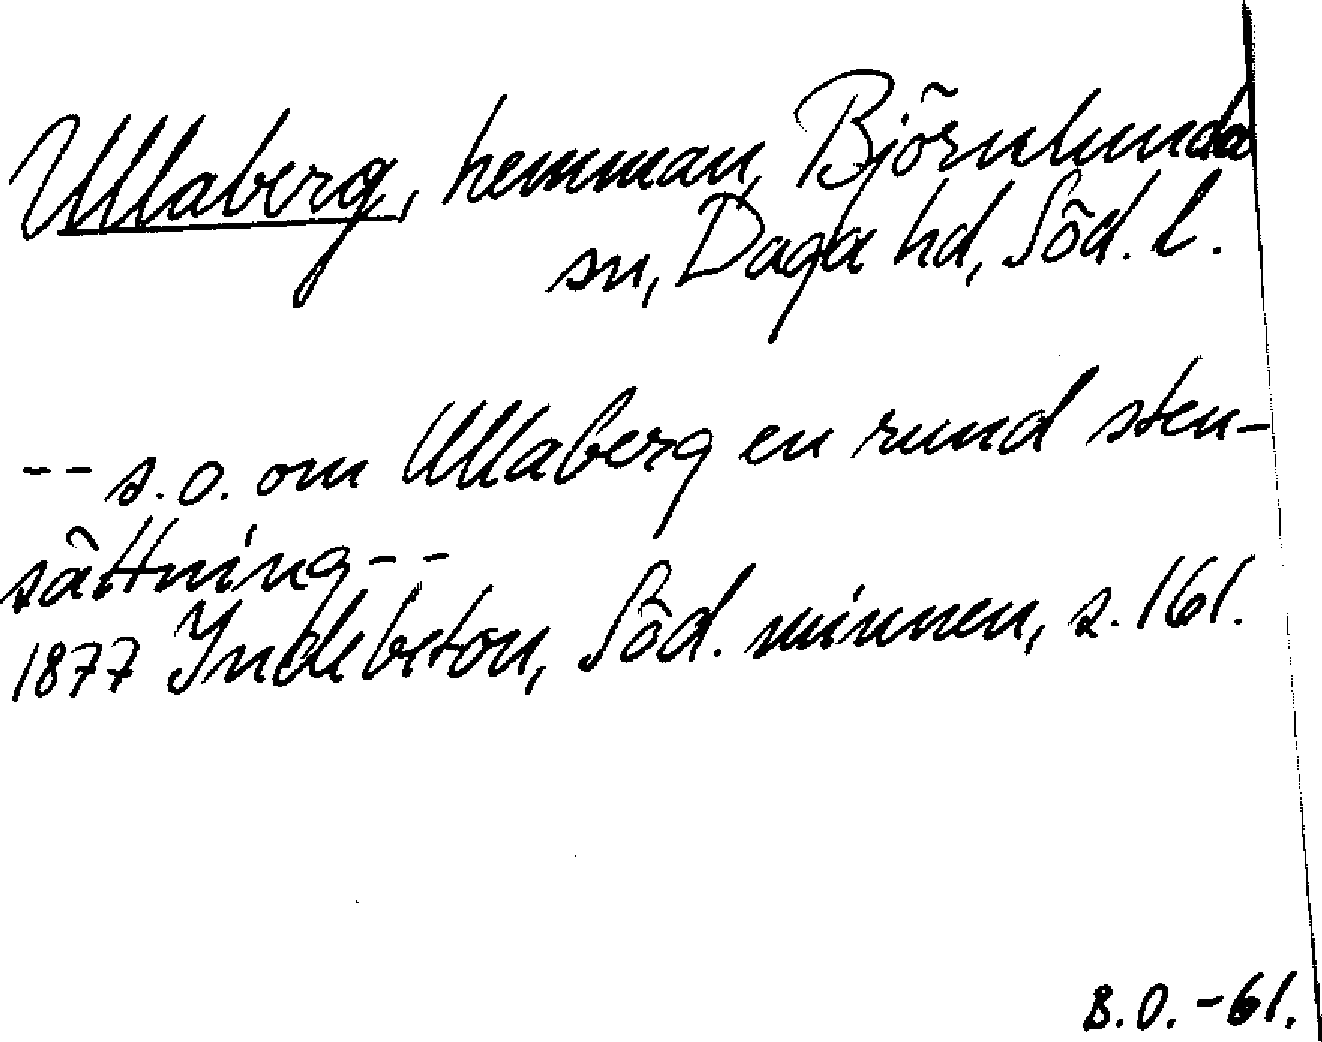 Ullaberg, hemman, Björnlunda
sn, Daga hd, Söd. l.
-- s.o. om Ullaberg en rund sten-
sättning --
1877 Indebetou, Söd. minnen, s. 161.
B.O. -61.